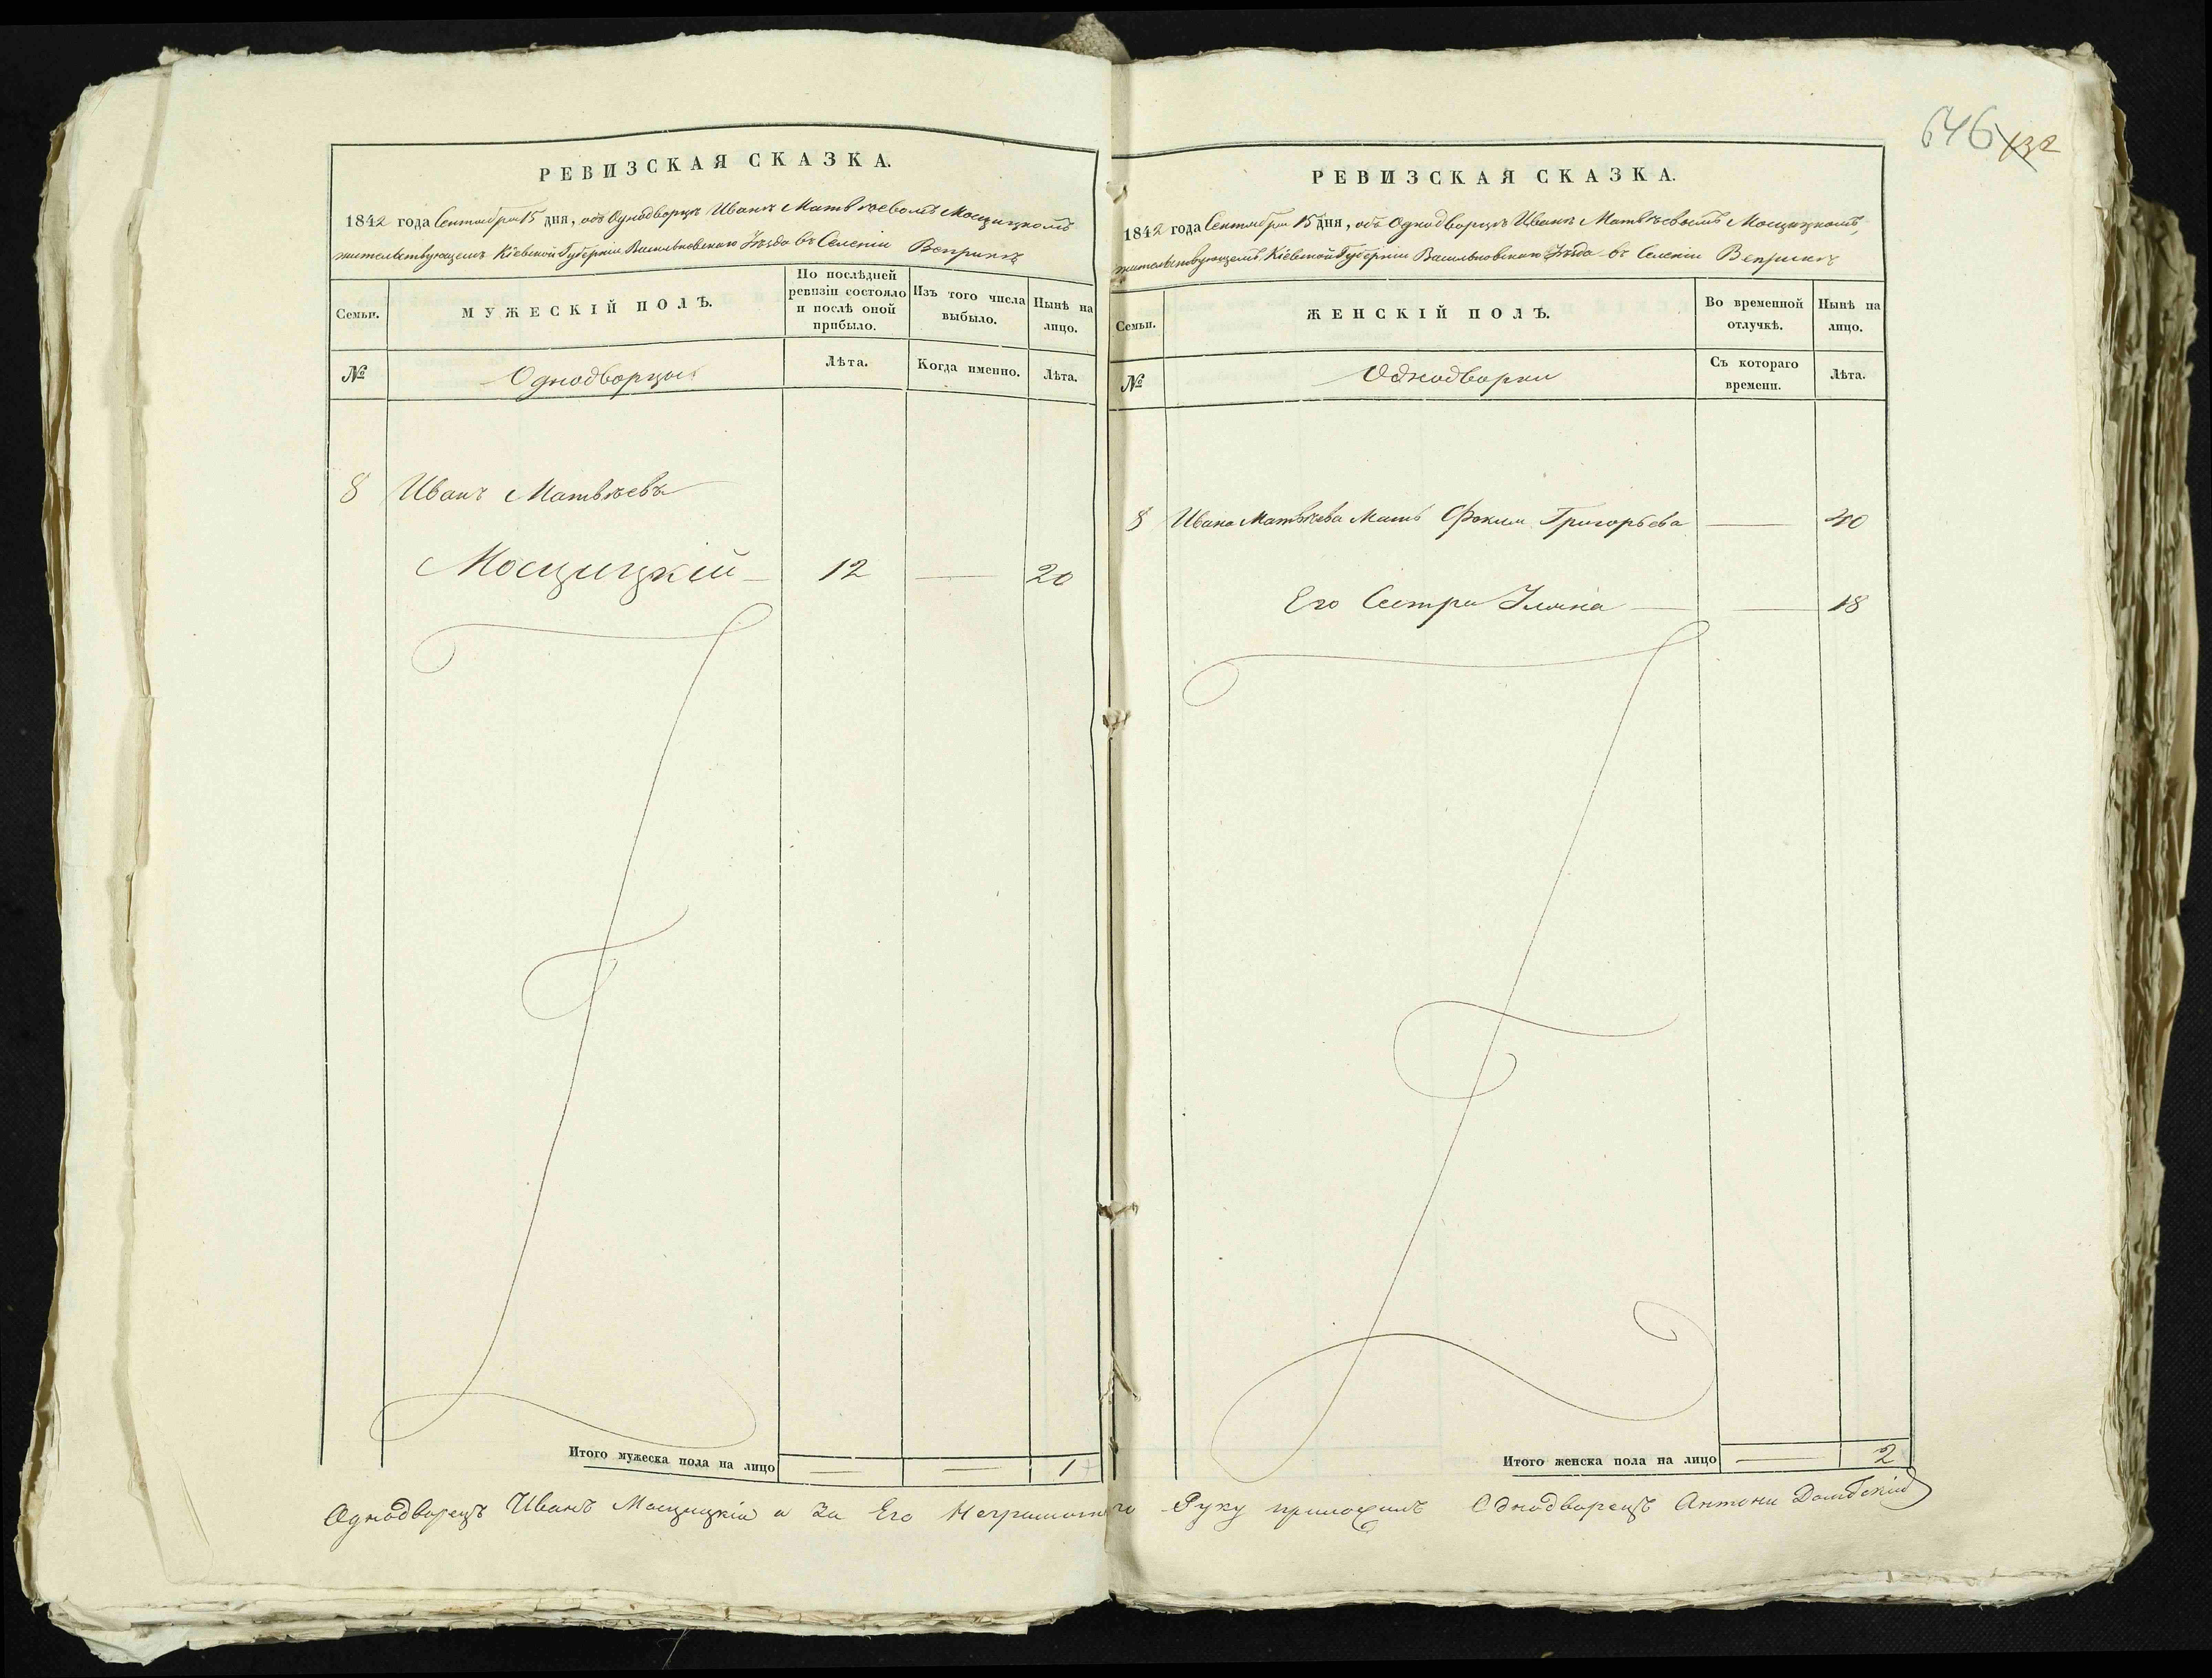 РЕВИЗСКАЯ СКАЗКА.
1842 года Сентября 15 дня, объ Однодворцѣ Иванѣ Матвѣевомъ Мосцицкомъ
жительствующемъ Кіевской Губерніи Васильковскаго Уѣзда въ Селеніи Веприкѣ
Семьи.
МУЖЕСКІЙ ПОЛЪ.
По послѣдней ревизіи состояло и послѣ оной прибыло.
Изъ того числа выбыло.
Нынѣ на лицо.
№
Однодворцы
Лѣта.
Когда именно.
Лѣта.
8 Иванъ Матвѣевъ
Мосцицкій 12 — 20
Итого мужеска пола на лицо — — 1
646 132
РЕВИЗСКАЯ СКАЗКА.
1842 года Сентября 15 дня, объ Однодворцѣ Иванѣ Матвѣевомъ Мосцицкомъ,
жительствующемъ Кіевской Губерніи Васильковскаго Уѣзда въ Селеніи Веприкѣ
Семьи.
ЖЕНСКІЙ ПОЛЪ.
Во временной отлучкѣ.
Нынѣ на лицо.
№
Однодворки
Съ котораго времени.
Лѣта.
8 Ивана Матвѣева Мать Григорьева — 40
Его Сестра — — 18
Итого женска пола на лицо — 2
Однодворецъ Иванъ Мосцицкій а За Его Неграмотнаго Руку приложилъ Однодворецъ Антони Домбскій